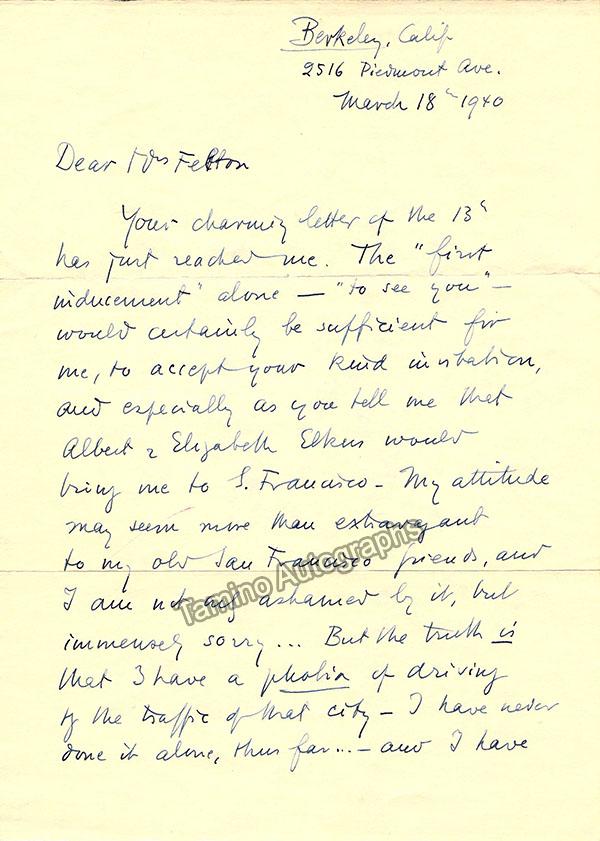 Berkeley, Calif
2516 Piedmont Ave.
March 18th 1940
Dear Mrs Felton
Your charming letter of the 13th
has just reached me. The "first
inducement" alone — "to see you" —
would certainly be sufficient for
me, to accept your kind invitation,
and especially as you tell me that
Albert & Elizabeth Elkus would
bring me to S. Francisco - My attitude
may seem more than extravagant
to my old San Francisco friends, and
I am not ashamed by it, but
immensely sorry... But the truth is
that I have a phobia of driving
the traffic of that city - I have never
done it alone, thus far... - and I have
Tamino Autographs